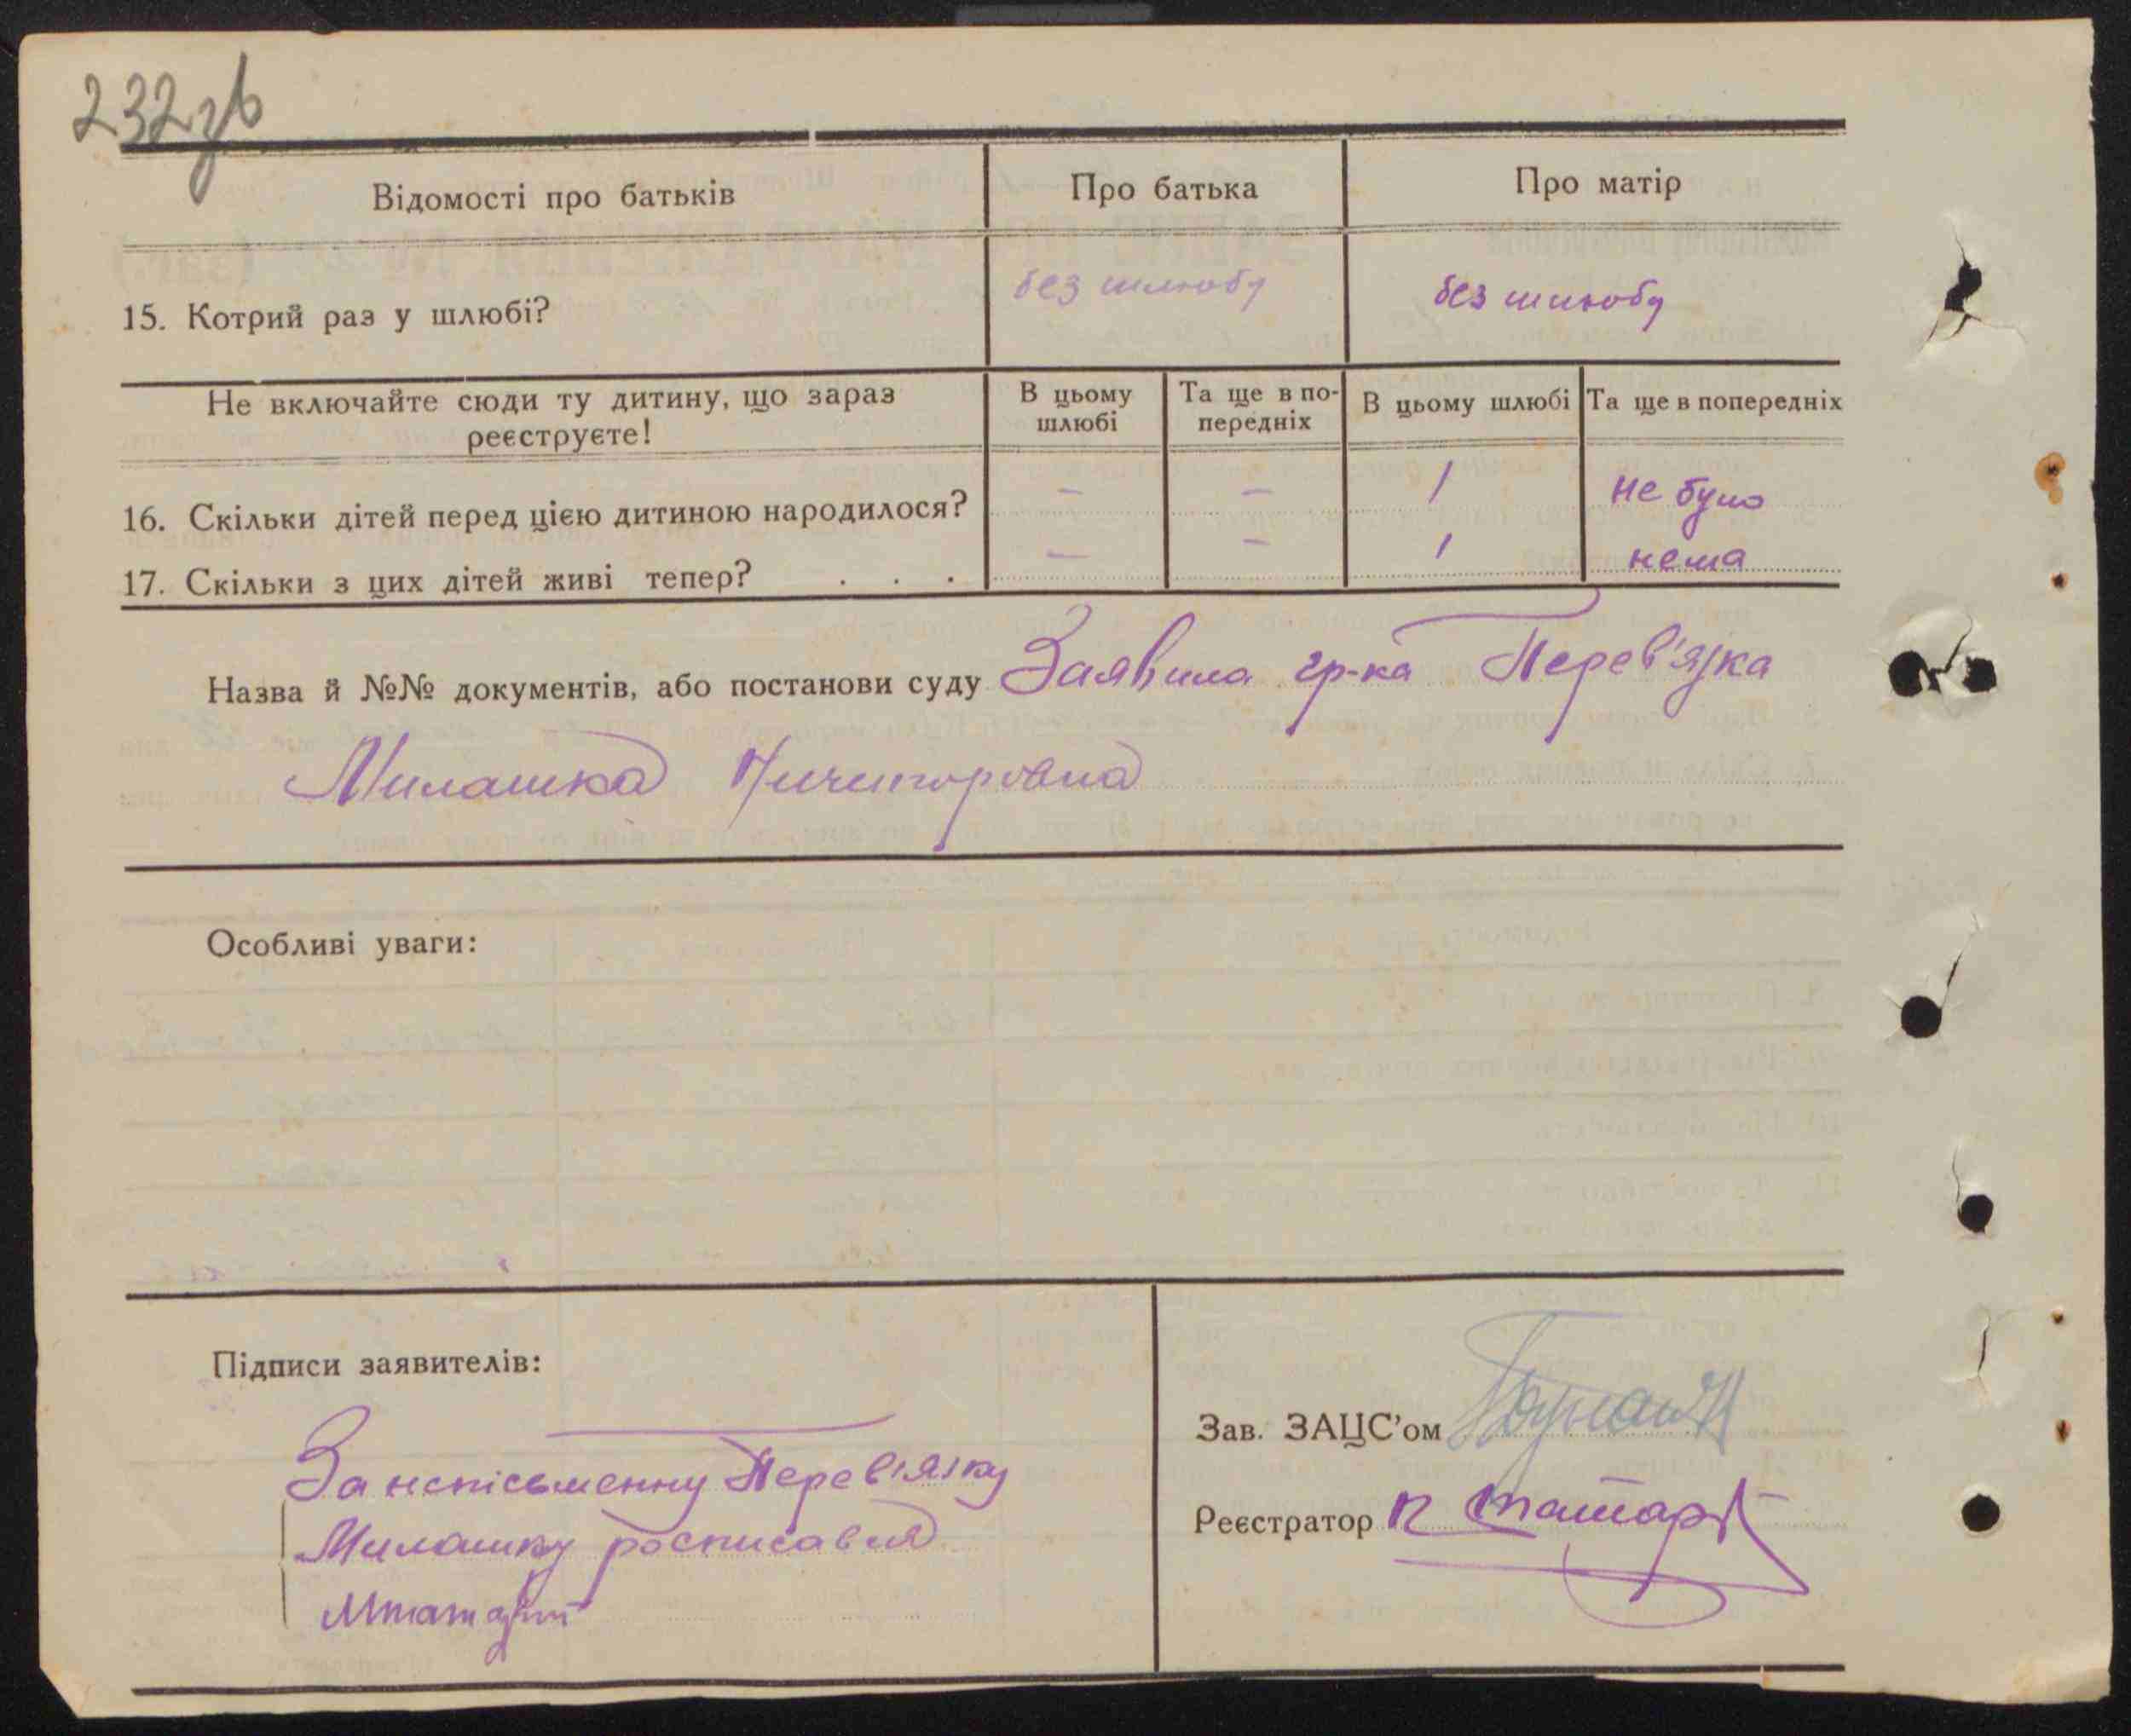 232зв
Відомості про батьків Про батька Про матір
15. Котрий раз у шлюбі? без шлюбу без шлюбу
Не включайте сюди ту дитину, що зараз реєструєте! В цьому шлюбі Та ще в по-передніх В цьому шлюбі Та ще в попередніх
16. Скільки дітей перед цією дитиною народилося? — — 1 не було
17. Скільки з цих дітей живі тепер? . . . — — 1 нема
Назва й №№ документів, або постанови суду Заявила гр-ка Перев'язка
Милашка Ничипоровна
Особливі уваги:
Підписи заявителів:
За неписьменну Перев'язку
Милашку росписався
Зав. ЗАЦС'ом
Реєстратор